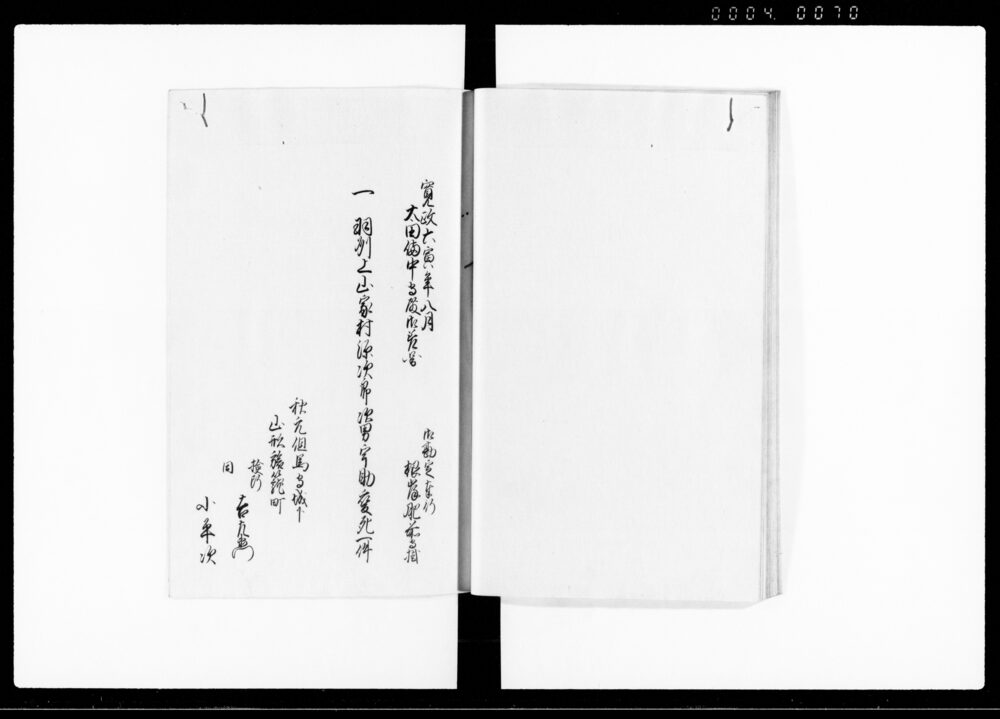 0004 0070
寛政六寅年八月
太田備中守殿御差図
御勘定奉行
根岸肥前守掛
一 羽州上山家村源次郎次男宇助変死一件
秋元但馬守城下
山形旅籠町
検断
吉右衛門
同
小平次